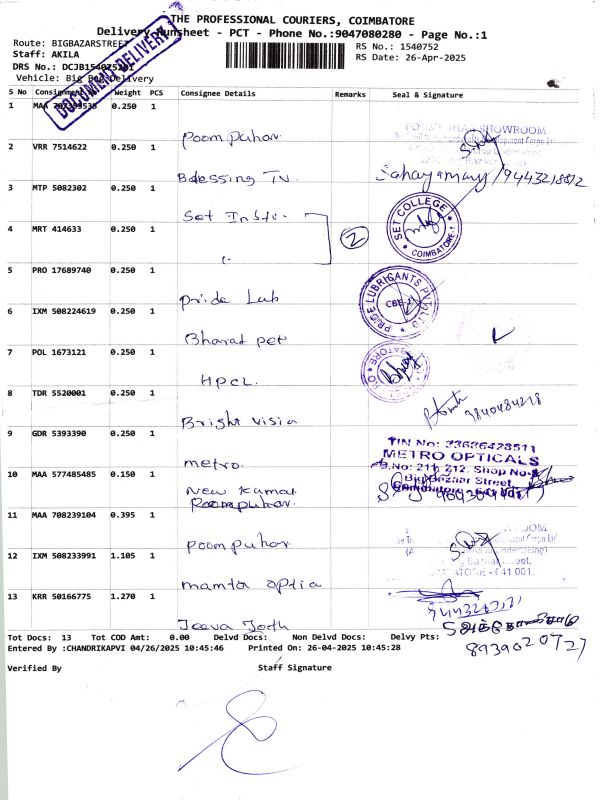 THE PROFESSIONAL COURIERS, COIMBATORE
Delivery Runsheet - PCT - Phone No.:9047080280 - Page No.:1
Route: BIGBAZARSTREET
RS No.: 1540752
Staff: AKILA
RS Date: 26-Apr-2025
DRS No.:
Vehicle: Big Bag Delivery
DOCUMENT DELIVERY
S No Consignment No Weight PCS Consignee Details Remarks Seal & Signature
1 MAA 0.250 1 Poompuhar
SHOWROOM
2 VRR 7514622 0.250 1 Blessing Tv.
Sahayamary 9443218812
3 MTP 5082302 0.250 1 Set Insti.
SET COLLEGE
COIMBATORE-1
4 MRT 414633 0.250 1
2
5 PRO 17689740 0.250 1 Pride Lub
PRIDE LUBRICANTS PVT LTD
CBE-1
6 IXM 508224619 0.250 1 Bharat pet
7 POL 1673121 0.250 1 HPCL
8 TDR 5520001 0.250 1 Bright visia
9 GDR 5393390 0.250 1 metro.
TIN No: 33636428511
METRO OPTICALS
D.No: 211, 212, Shop No-
Big Bazaar Street
Coimbatore - 641 001
10 MAA 577485485 0.150 1 New Kamal
11 MAA 708239104 0.395 1 Poompuhar
poompuhar
12 IXM 508233991 1.105 1 mamta optia
13 KRR 50166775 1.270 1 Jeeva Joth
8939020727
Tot Docs: 13 Tot COD Amt: 0.00 Delvd Docs: Non Delvd Docs: Delvy Pts:
Entered By :CHANDRIKAPVI 04/26/2025 10:45:46 Printed On: 26-04-2025 10:45:28
Verified By Staff Signature